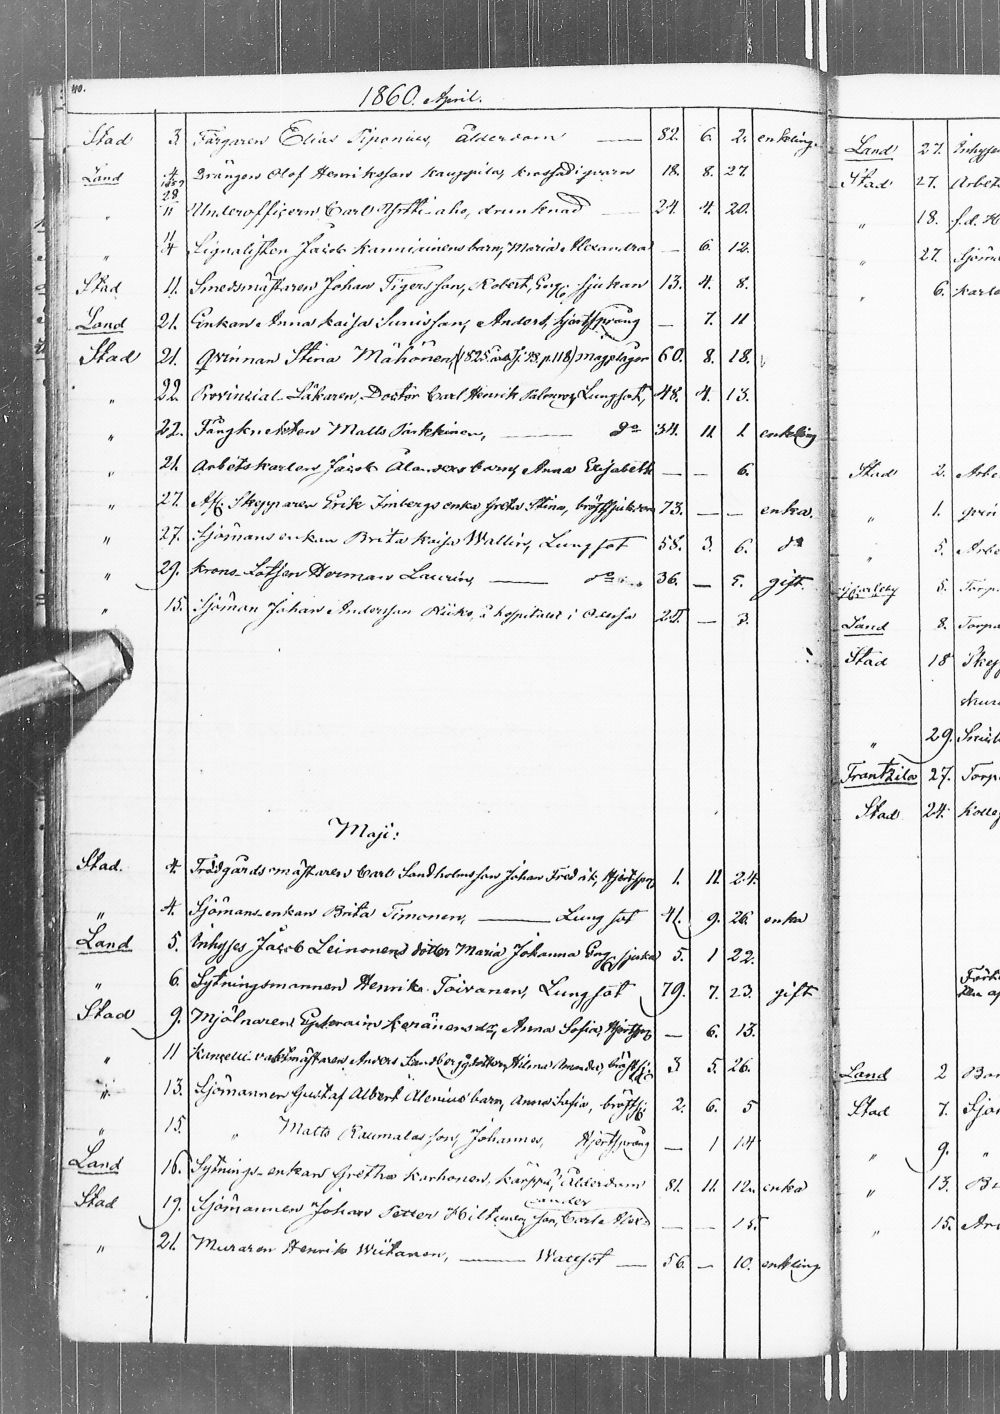 40.
1860. April.
Stad 3. Färgaren Elias Piponius, Ålderdom — 82. 6. 2. enkling.
Land 4/1859 Drängen Olof Henriksson Kauppila, 18. 8. 27.
" 28/11 Underofficern Carl aho, drunknad — 24. 4. 20.
" 11/4 Signalisten Jacob Kanniainens barn, Maria Alexandra — 6. 12.
Stad 11. Smedsmästaren Johan Tigers son, Robert, Eng. sjukan 13. 4. 8.
Land 21. Enkan Anna Kaisa Sunis son, Anders, hjertsprång — 7. 11
Stad 21. Qvinnan Stina Mähönen, (1825 p. 118) magplågor 60. 8. 18.
" 22. Provincial-Läkaren, Doctor Carl Henrik Lungsot, 48. 4. 13.
" 22. Fångknekten Matts Parkkinen, — do 34. 11. 1. enkling
" 21. Arbetskarlen Jacob Ålanders barn, Anna Elisabeth — — 6.
" 27. Afsk. Skepparen Erik Imbergs enka Greta Stina, bröstsjukdom 73. — — enka.
" 27. Sjömansenkan Brita Kaisa Wallin, Lungsot 58. 3. 6. do
" 29. Krono-Lotsen Herman Laurin, — do 36. — 5. gift.
" 15. Sjöman Johan Andersson å hospitalet i Odessa — 3.
Maji:
Stad. 4. Trädgårdsmästaren Carl Sandholms son Johan Fredrik, Hjertspr. 1. 11. 24.
" 4. Sjömans-enkan Brita Timonen, — Lungsot 41. 9. 26. enka
Land 5. Inhyses Jacob Leinonens dotter Maria Johanna Eng. sjuka 5. 1 22.
" 6. Sytningsmannen Henrik Toivanen, Lungsot 79. 7. 23. gift
Stad 9. Mjölnaren Ephraim Keränens dr, Anna Sofia, Hjertspr. — 6. 13.
" 11 Kanselli vaktmästaren Anders Sandbergs dotter Hilma Amanda, bröstsj. 3 5. 26.
" 13. Sjömannen Gustaf Albert Alenius barn, Anna Sofia, bröstsj. 2. 6. 5
" 15. " Matts Raumalas son, Johannes, Hjertsprång — 1 14
Land 16. Sytnings-enkan Gretha Korhonen, Ålderdom 81. 11. 12. enka
Stad 19. Sjömannen Johan Petter Hiltunens son, Carl Alexander — — 15.
" 21. Muraren Henrik Wiitanen, — Wattsot — 56. — 10. enkling
Land 27. Inhyses
Stad 27. Arbet
" 18. f.d.
" 27. Sjöm
" 6. Karl
Stad 2. Arbe
" 1. Qvin
" 5. Arbe
5. Torp
Land 8. Torpa
Stad 18 Skep
" 29.
Frantzila 27. Torp
Stad 24. Kolleg
Land 2
Stad 7. Sjö
" 9. "
" 13.
" 15.